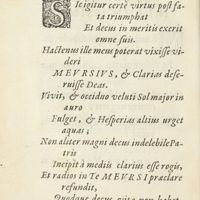 SIc igitur certè virtus post fa-
ta triumphat
Et decus in meritis exerit
omne suis.
Hactenus ille meus poterat vixisse vi-
deri
MEVRSIVS, & Clarias dese-
ruisse Deas.
Vivit, & occiduo veluti Sol major in
auro
Fulget, & Hesperias altius urget
aquas;
Non aliter magni decus indelebile Pa-
tris
Incipit à mediis clarius esse rogis,
Et radios in Te MEVRSI praeclare
refundit,
Quodque decus vita non habet